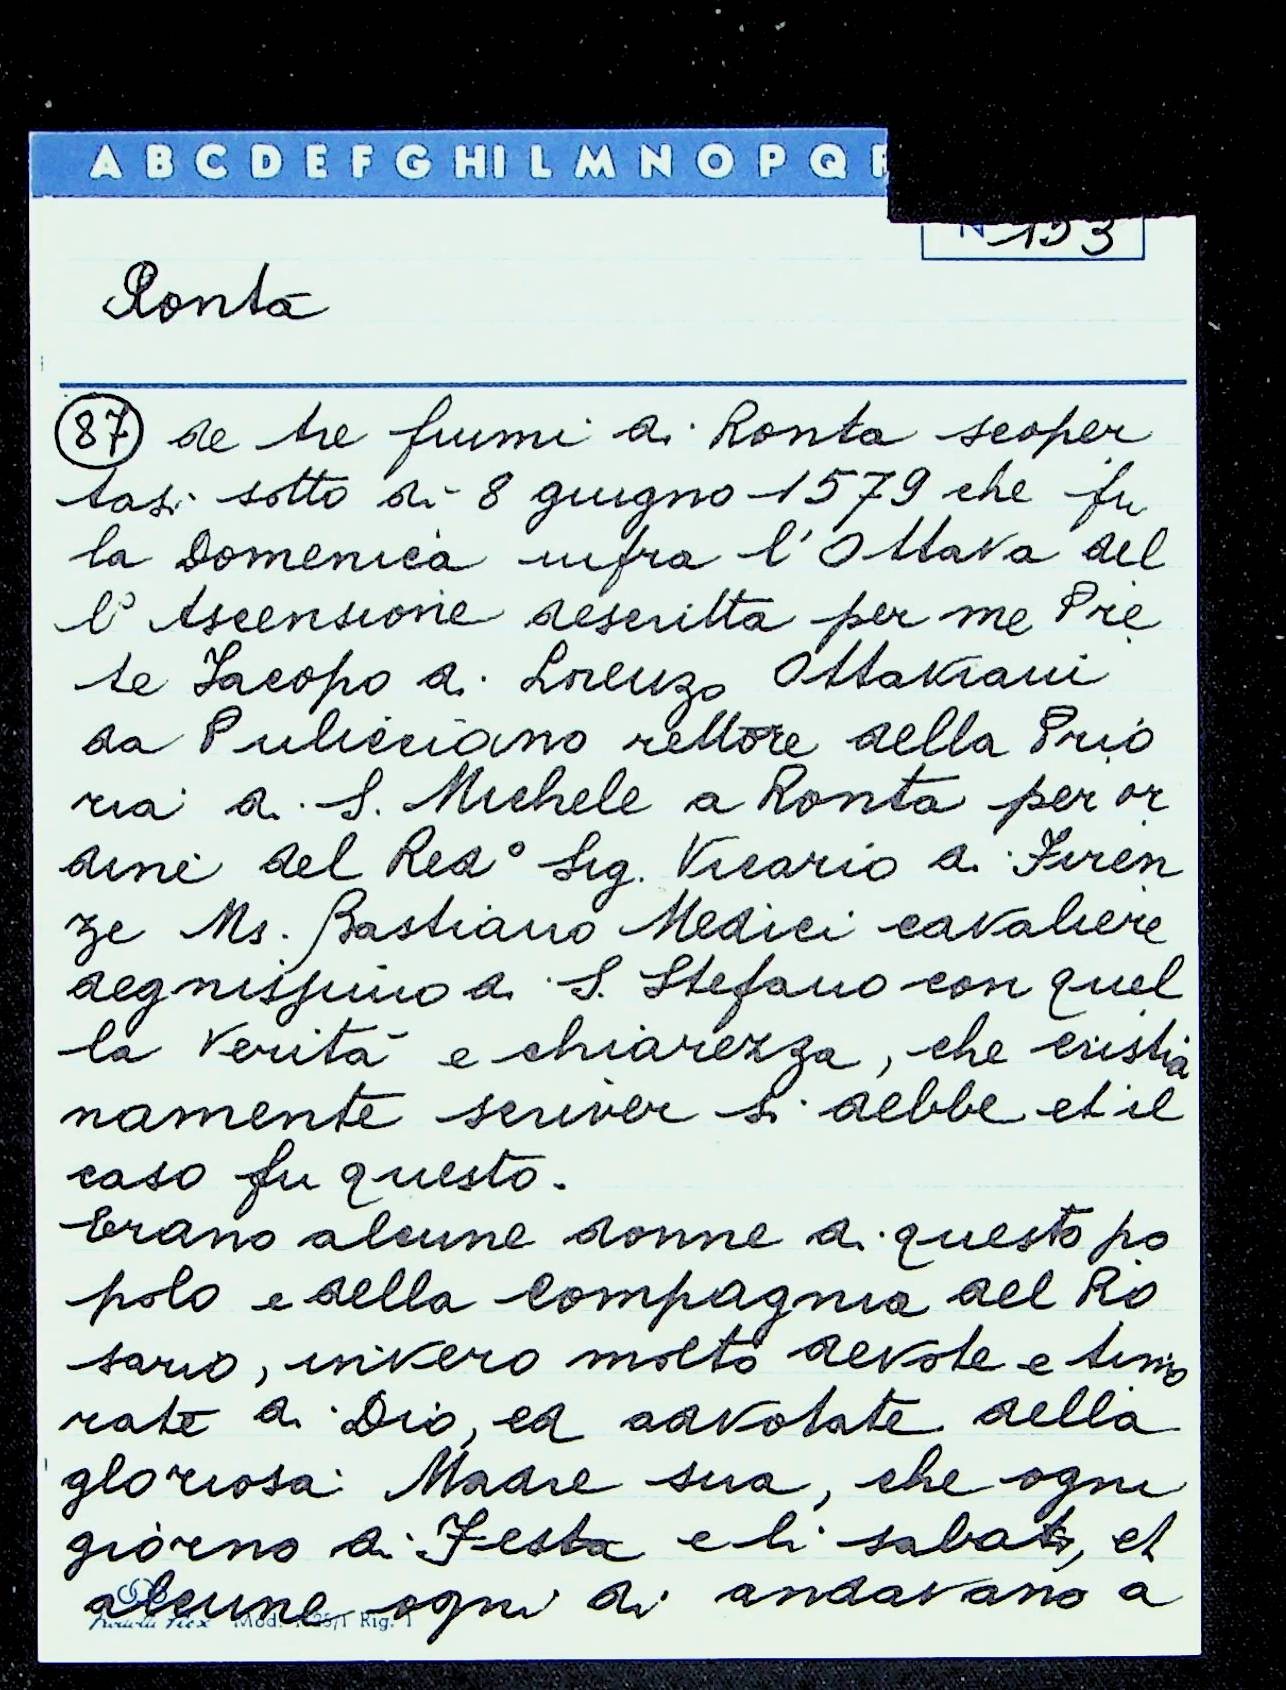 A B C D E F G H I L M N O P Q
N 153
Ronta
87 de tre fiumi di Ronta scoper
tasi sotto dì 8 giugno 1579 che fu
la Domenica infra l'Ottava del
l'Ascensione descritta per me Pre
te Jacopo di Lorenzo Ottaviani
da Pulicciano rettore della Prio
ria di S. Michele a Ronta per or
dine del Redº Sig. Vicario di Firen
ze Ms. Bastiano Medici cavaliere
degnissimo di S. Stefano con quel
la verità e chiarezza, che cristia
namente scriver si debbe et il
caso fu questo.
Erano alcune donne di questo po
polo e della Compagnia del Ro
sario, invero molto devote e timo
rate di Dio, ed advotate della
gloriosa Madre sua, che ogni
giorno di Festa e li sabati, et
alcune ogni dì andavano a
Mod. Rig. 1